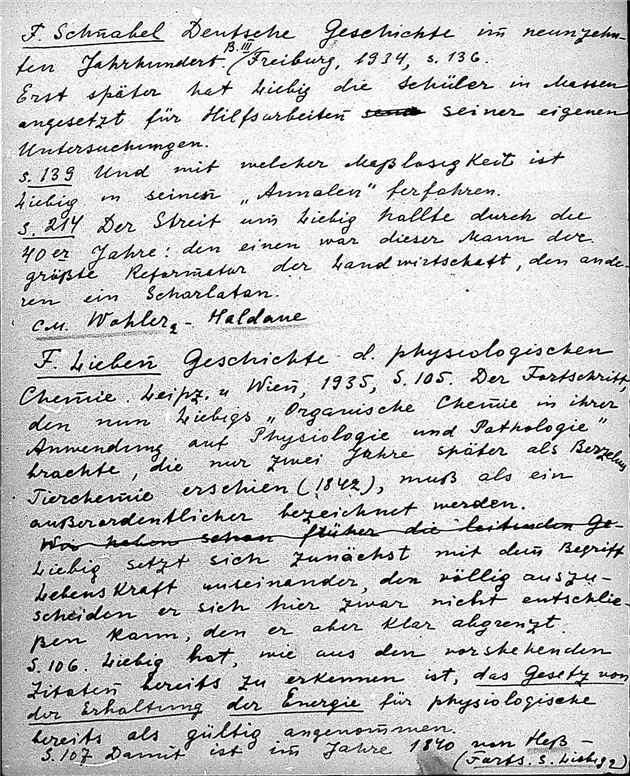 F. Schnabel Deutsche Geschichte im neunzehn-
ten Jahrhundert B. III (Freiburg, 1934, s. 136.
Erst später hat Liebig die Schüler in Massen
angesetzt für Hilfsarbeiten seiner eigenen
Untersuchungen.
s. 139 Und mit welcher Maßlosigkeit ist
Liebig in seinen „Annalen" ferfahren.
s. 214 Der Streit um Liebig hallte durch die
40er Jahre: den einen war dieser Mann der
größte Reformator der Landwirtschaft, den ande-
ren ein Scharlatan.
см. Wöhler2 - Haldane
F. Lieben Geschichte d. physiologischen
Chemie. Leipz. u Wien, 1935, S. 105. Der Fortschritt,
den nun Liebigs „Organische Chemie in ihrer
Anwendung auf Physiologie und Pathologie"
brachte, die nur zwei Jahre später als Berzelius
Tierchemie erschien (1842), muß als ein
außerordentlicher bezeichnet werden.
Wir haben schon früher die leitenden Ge-
Liebig setzt sich zunächst mit dem Begriff
Lebenskraft auseinander, den völlig auszu-
scheiden er sich hier zwar nicht entschlie-
ßen kann, den er aber klar abgrenzt.
S. 106. Liebig hat, wie aus den vorstehenden
Zitaten bereits zu erkennen ist, das Gesetz von
der Erhaltung der Energie für physiologische
bereits als gültig angenommen.
S. 107 Damit ist im Jahre 1840 von Heß -
(Forts. s. Liebig2)